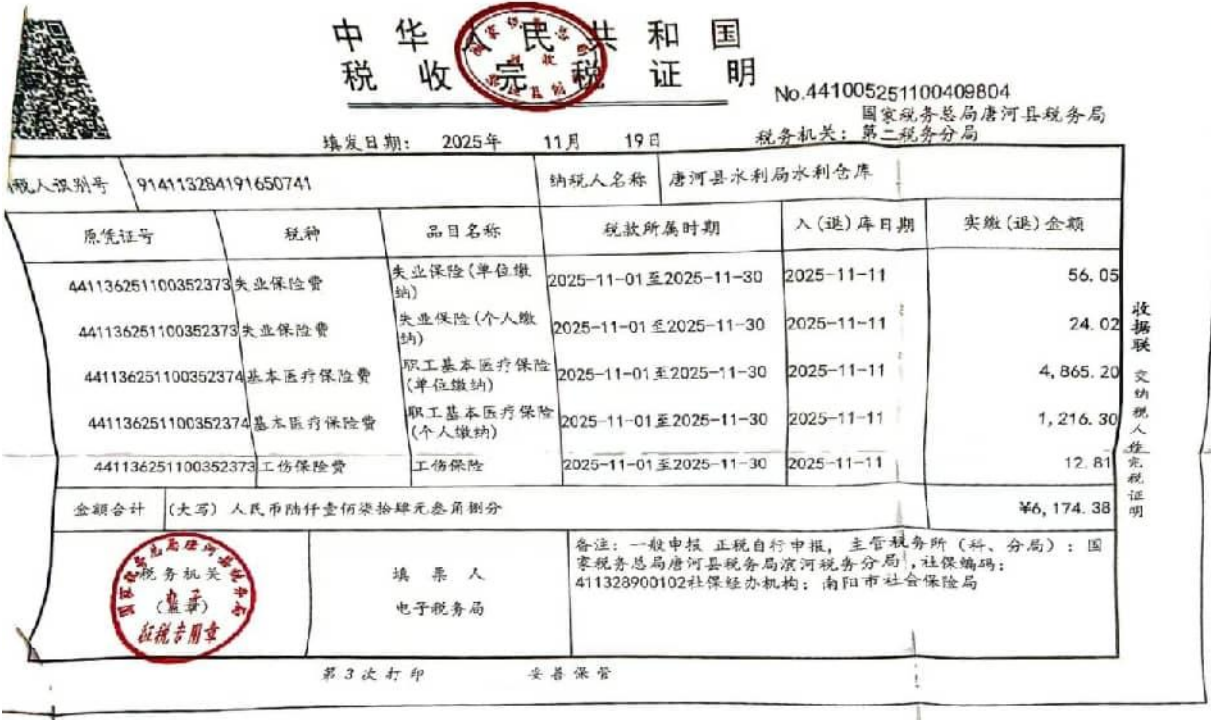 中华人民共和国
税收完税证明
No.441005251100409804
国家税务总局唐河县税务局
填发日期： 2025年 11月 19日 税务机关：第二税务分局
税人识别号 914113284191650741 纳税人名称 唐河县水利局水利仓库
原凭证号 税种 品目名称 税款所属时期 入(退)库日期 实缴(退)金额
441136251100352373 失业保险费 失业保险(单位缴纳) 2025-11-01至2025-11-30 2025-11-11 56.05
441136251100352373 失业保险费 失业保险(个人缴纳) 2025-11-01至2025-11-30 2025-11-11 24.02
441136251100352374 基本医疗保险费 职工基本医疗保险(单位缴纳) 2025-11-01至2025-11-30 2025-11-11 4,865.20
441136251100352374 基本医疗保险费 职工基本医疗保险(个人缴纳) 2025-11-01至2025-11-30 2025-11-11 1,216.30
441136251100352373 工伤保险费 工伤保险 2025-11-01至2025-11-30 2025-11-11 12.81
金额合计 (大写) 人民币陆仟壹佰柒拾肆元叁角捌分 ¥6,174.38
税务机关
(盖章)
征税专用章
填票人
电子税务局
备注：一般申报 正税自行申报，主管税务所（科、分局）：国
家税务总局唐河县税务局滨河税务分局，社保编码：
411328900102社保经办机构：南阳市社会保险局
收据联 交纳税人作完税证明
第3次打印 妥善保管